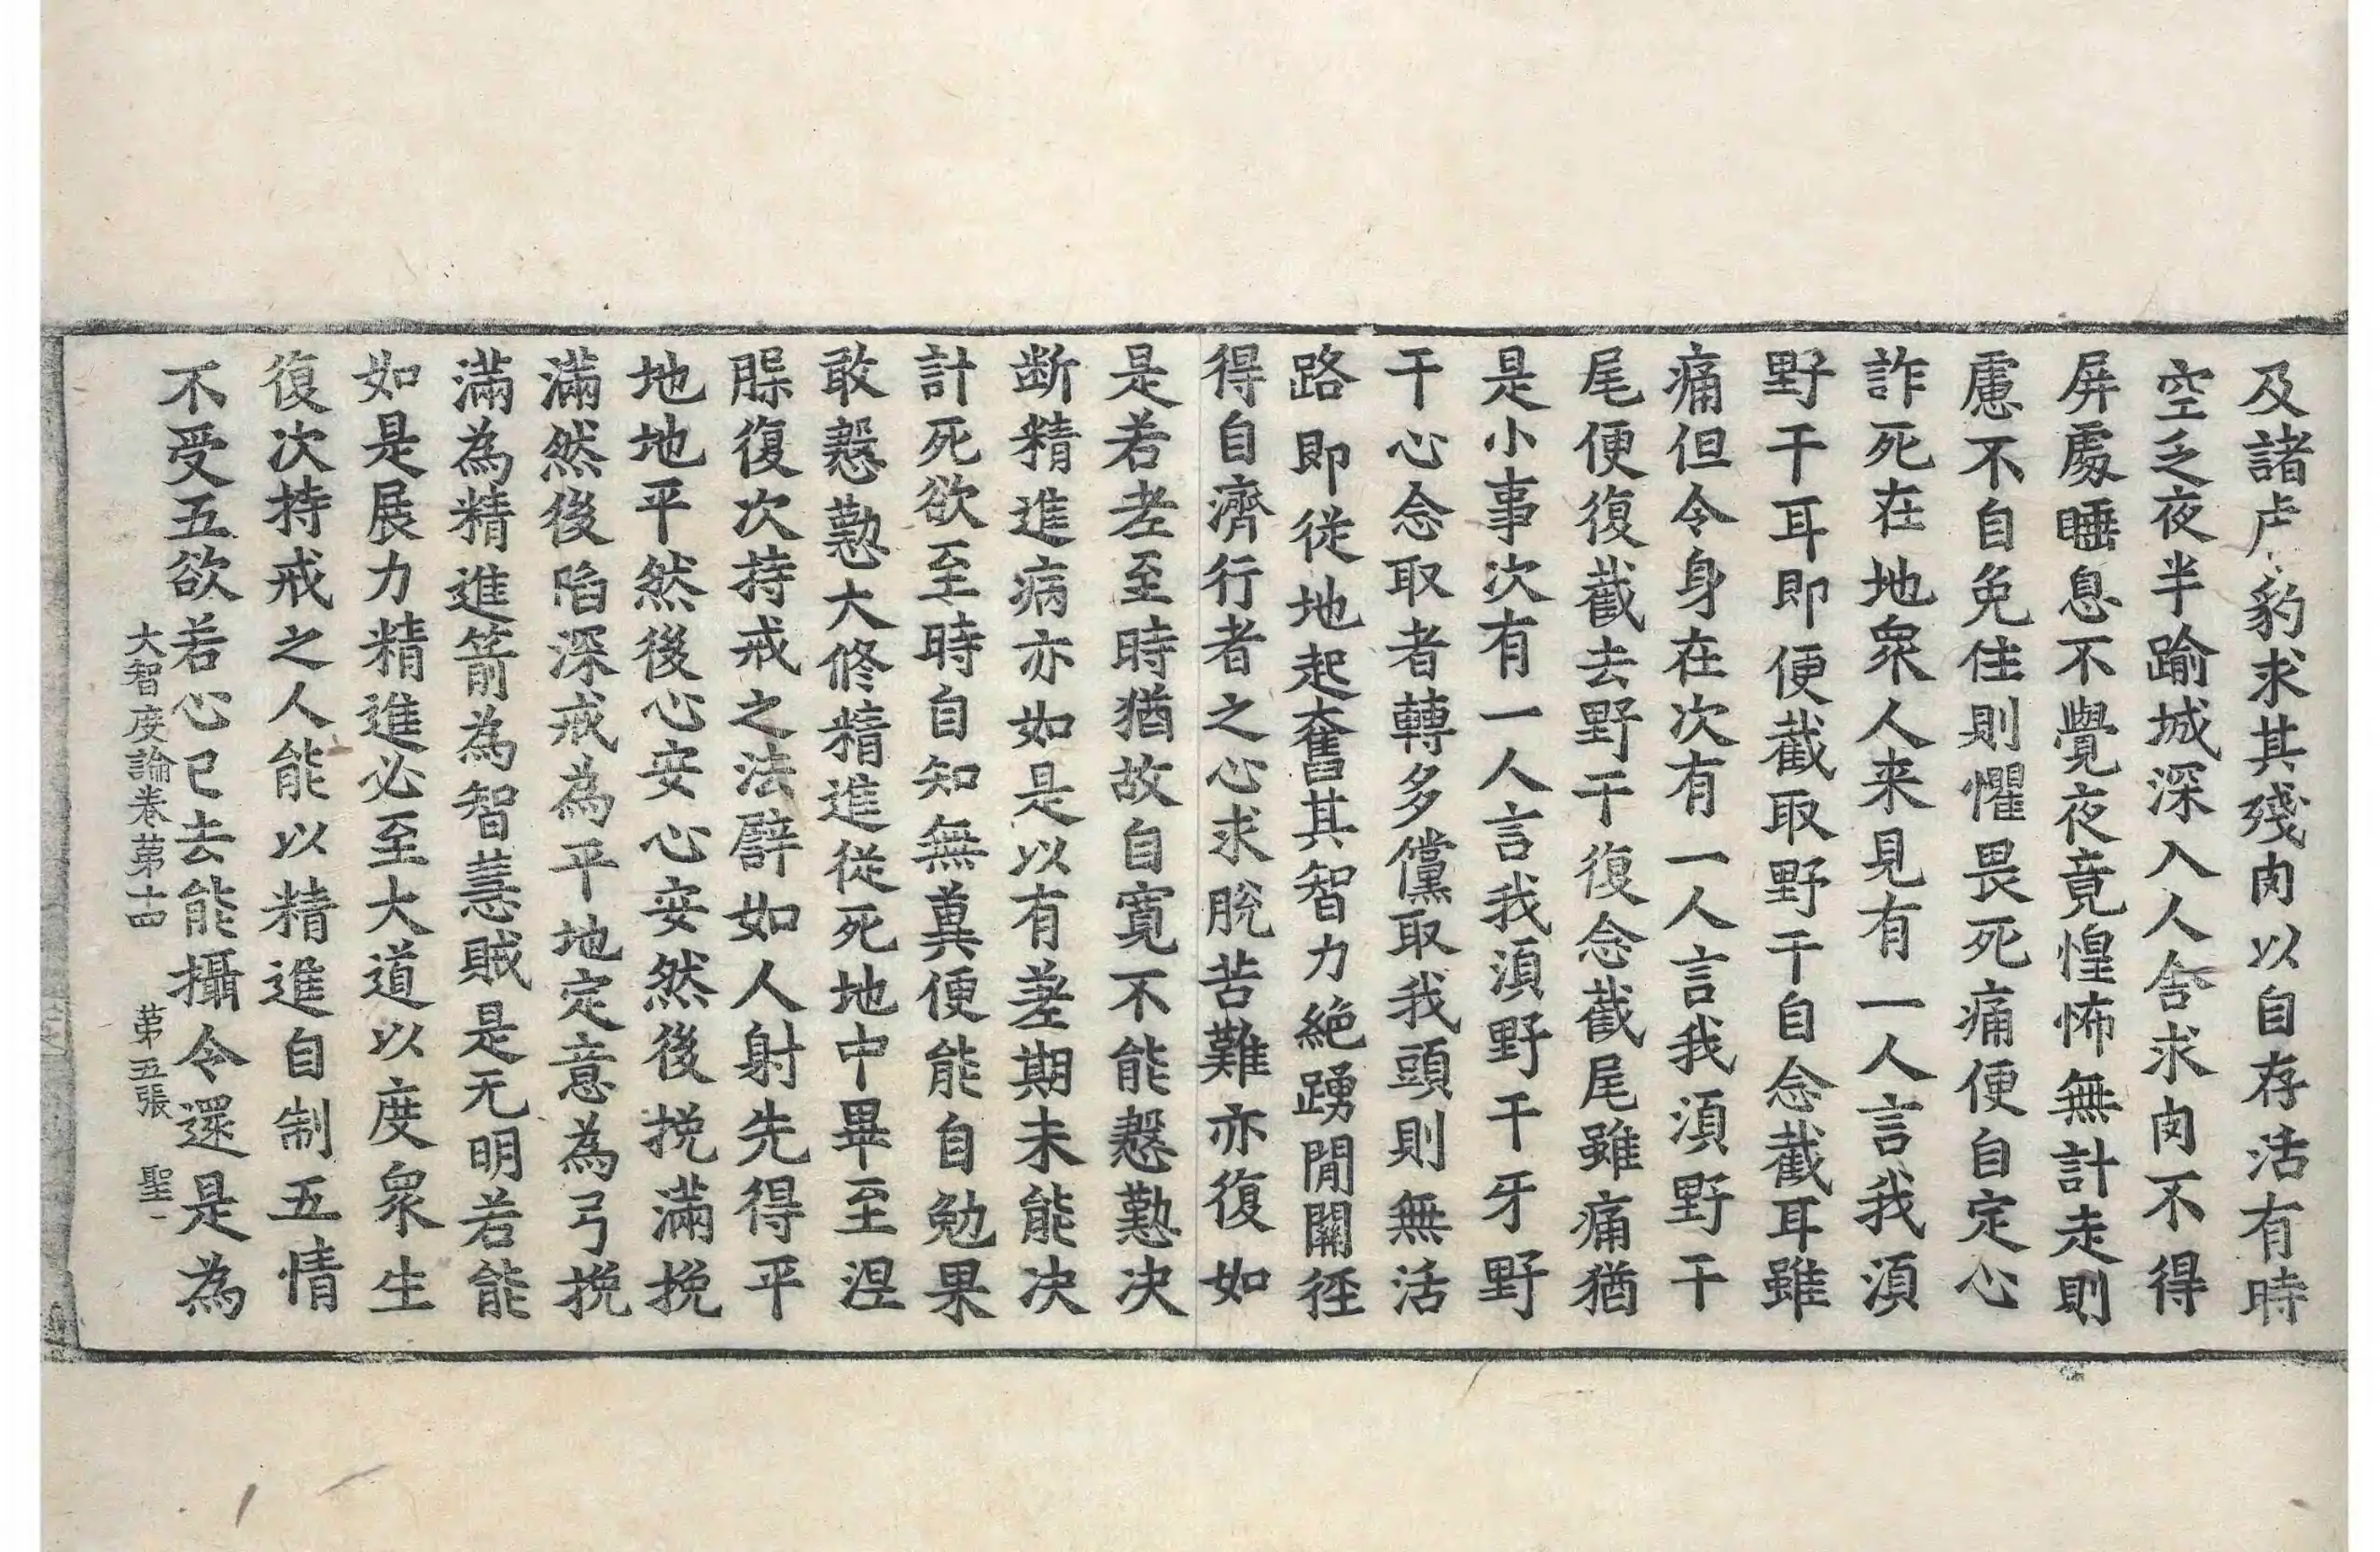 及諸虎豹求其殘肉以自存活有時
空乏夜半踰城深入人舍求肉不得
屏處睡息不覺夜竟惶怖無計走則
慮不自免住則懼畏死痛便自定心
詐死在地眾人来見有一人言我湏
野干耳即便截取野干自念截耳雖
痛但令身在次有一人言我湏野干
尾便復截去野干復念截尾雖痛猶
是小事次有一人言我湏野干牙野
干心念取者轉多儻取我頭則無活
路即從地起奮其智力絕踴間關徑
得自濟行者之心求脫苦難亦復如
是若老至時猶故自寬不能慇懃决
断精進病亦如是以有差期未能决
計死欲至時自知無冀便能自勉果
敢慇懃大修精進從死地中畢至涅
槃復次持戒之法譬如人射先得平
地地平然後心安心安然後挽滿挽
滿然後陷深戒為平地定意為弓挽
滿為精進箭為智慧賊是无明若能
如是展力精進必至大道以度眾生
復次持戒之人能以精進自制五情
不受五欲若心已去能攝令還是為
大智度論卷苐十四 苐五張 聖